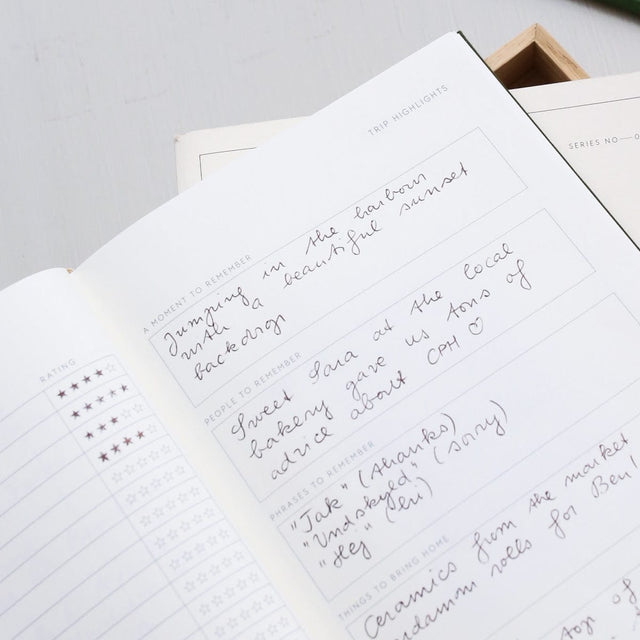 TRIP HIGHLIGHTS
SERIES NO—0
A MOMENT TO REMEMBER
Jumping in the harbour
with a beautiful sunset
backdrop
PEOPLE TO REMEMBER
Sweet Sara at the local
bakery gave us tons of
advice about CPH ♡
PHRASES TO REMEMBER
"Tak" (thanks)
"Undskyld" (sorry)
"Hej" (hi)
THINGS TO BRING HOME
Ceramics from the market
rolls for Ben!
top of
RATING